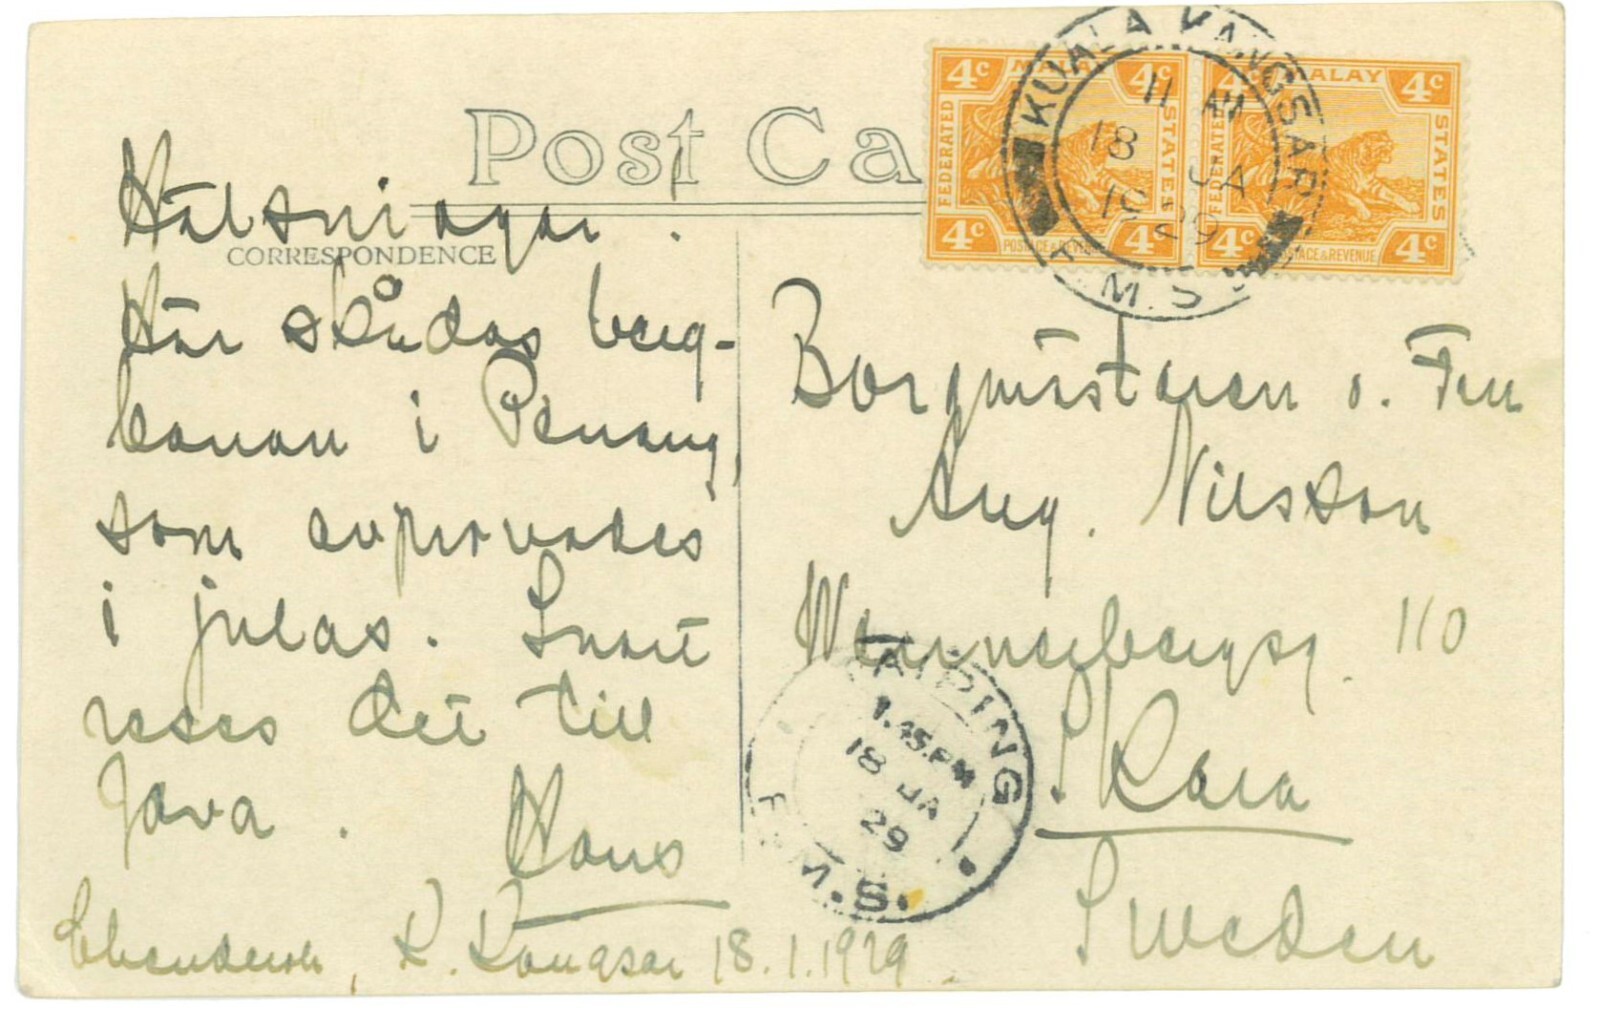 Post Ca
CORRESPONDENCE
Hälsningar!
Här skådas berg-
banan i Penang,
som avprovades
i julas. Snart
reses det till
Java.
Hans
K. Kangsar 18.1.1929
FEDERATED MALAY STATES
4c 4c
4c 4c
POSTAGE & REVENUE
FEDERATED MALAY STATES
4c 4c
4c 4c
POSTAGE & REVENUE
KUALA KANGSAR
11 AM
18 JA
1929
F.M.S.
Borgmästaren o. Fru
Aug. Nilsson
Wennerbergsg. 110
Skara
Sweden
TAIPING
1.45.PM
18 JA
29
F.M.S.